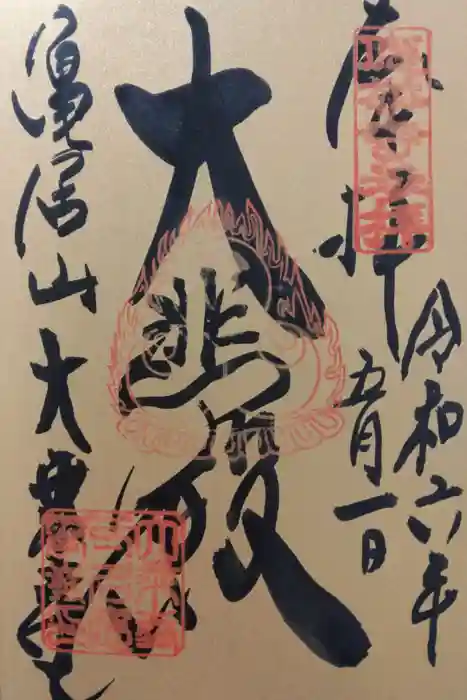 奉拝
令和六年
五月一日
大悲殿
亀居山大願寺